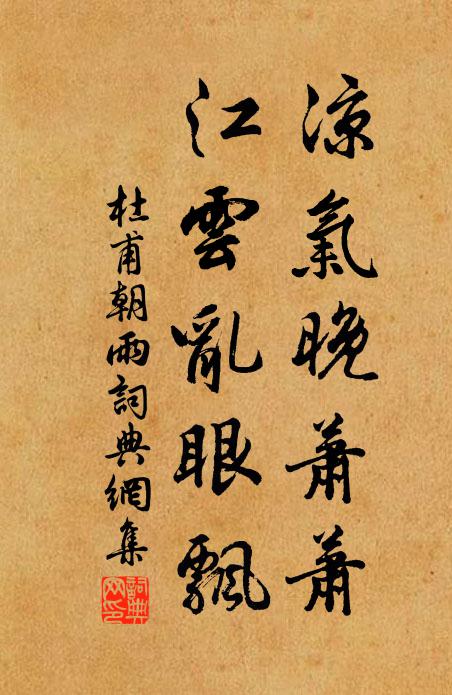 涼氣晚蕭蕭
江雲亂眼飄
杜甫朝雨詞典網集
詞典
网印